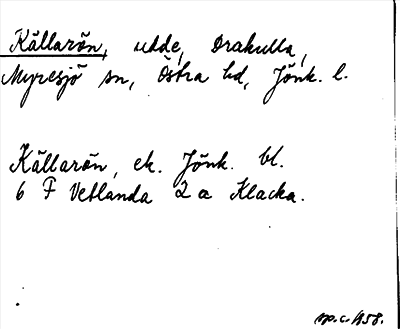 Källarön, udde, Drakulla,
Myresjö sn, Östra hd, Jönk. l.
Källarön, ek. Jönk. bl.
6 F Vetlanda 2 a Klacka.
op. c. 1958.